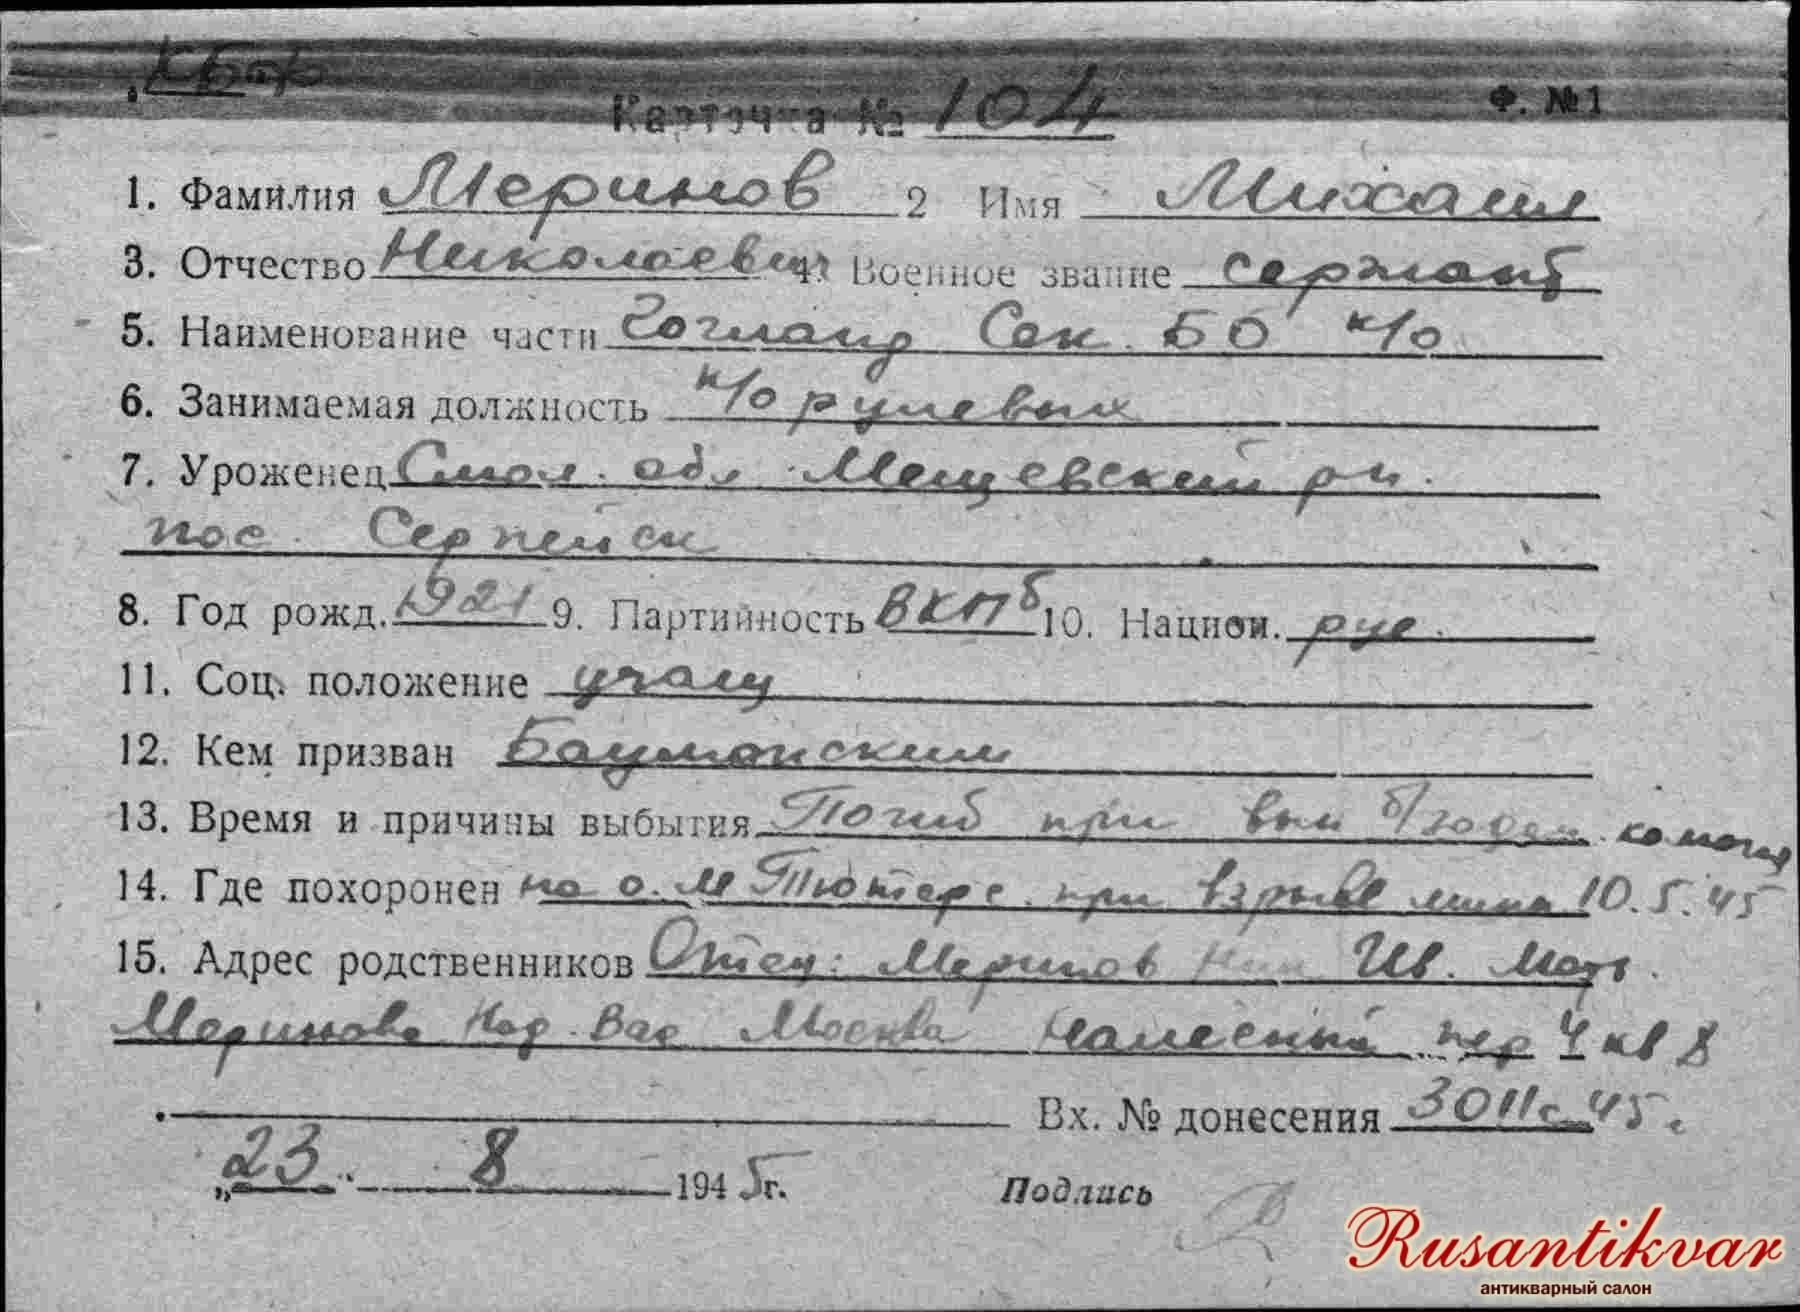 КБФ
Карточка № 104 Ф. №1
1. Фамилия Меринов 2 Имя Михаил
3. Отчество Николаевич 4. Военное звание сержант
5. Наименование части Гогланд Сек. БО к/о
6. Занимаемая должность к/о рулевых
7. Уроженец Смол. обл. Мещевский рн.
пос. Серпейск
8. Год рожд. 1921 9. Партийность ВКПб 10. Национ. рус.
11. Соц. положение учащ
12. Кем призван Бауманским
13. Время и причины выбытия Погиб при вып б/задан.
14. Где похоронен на о. М Тютерс при взрыве мины 10.5.45
15. Адрес родственников Отец: Меринов Ник Ив. Мать.
Меринова Над. Вас Москва пер 4 кв 8
Вх. № донесения 3011с 45г.
„23" 8 1945г. Подпись
Rusantikvar
антикварный салон